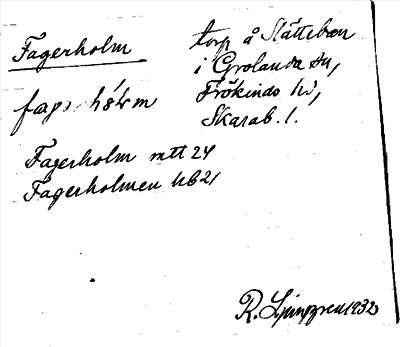 Fagerholm
torp å Slättebon
i Grolanda sn,
Frökinds hd,
Skarab. l.
Fagerholm mtt 24
Fagerholmen hb 21
R. Ljunggren 1932